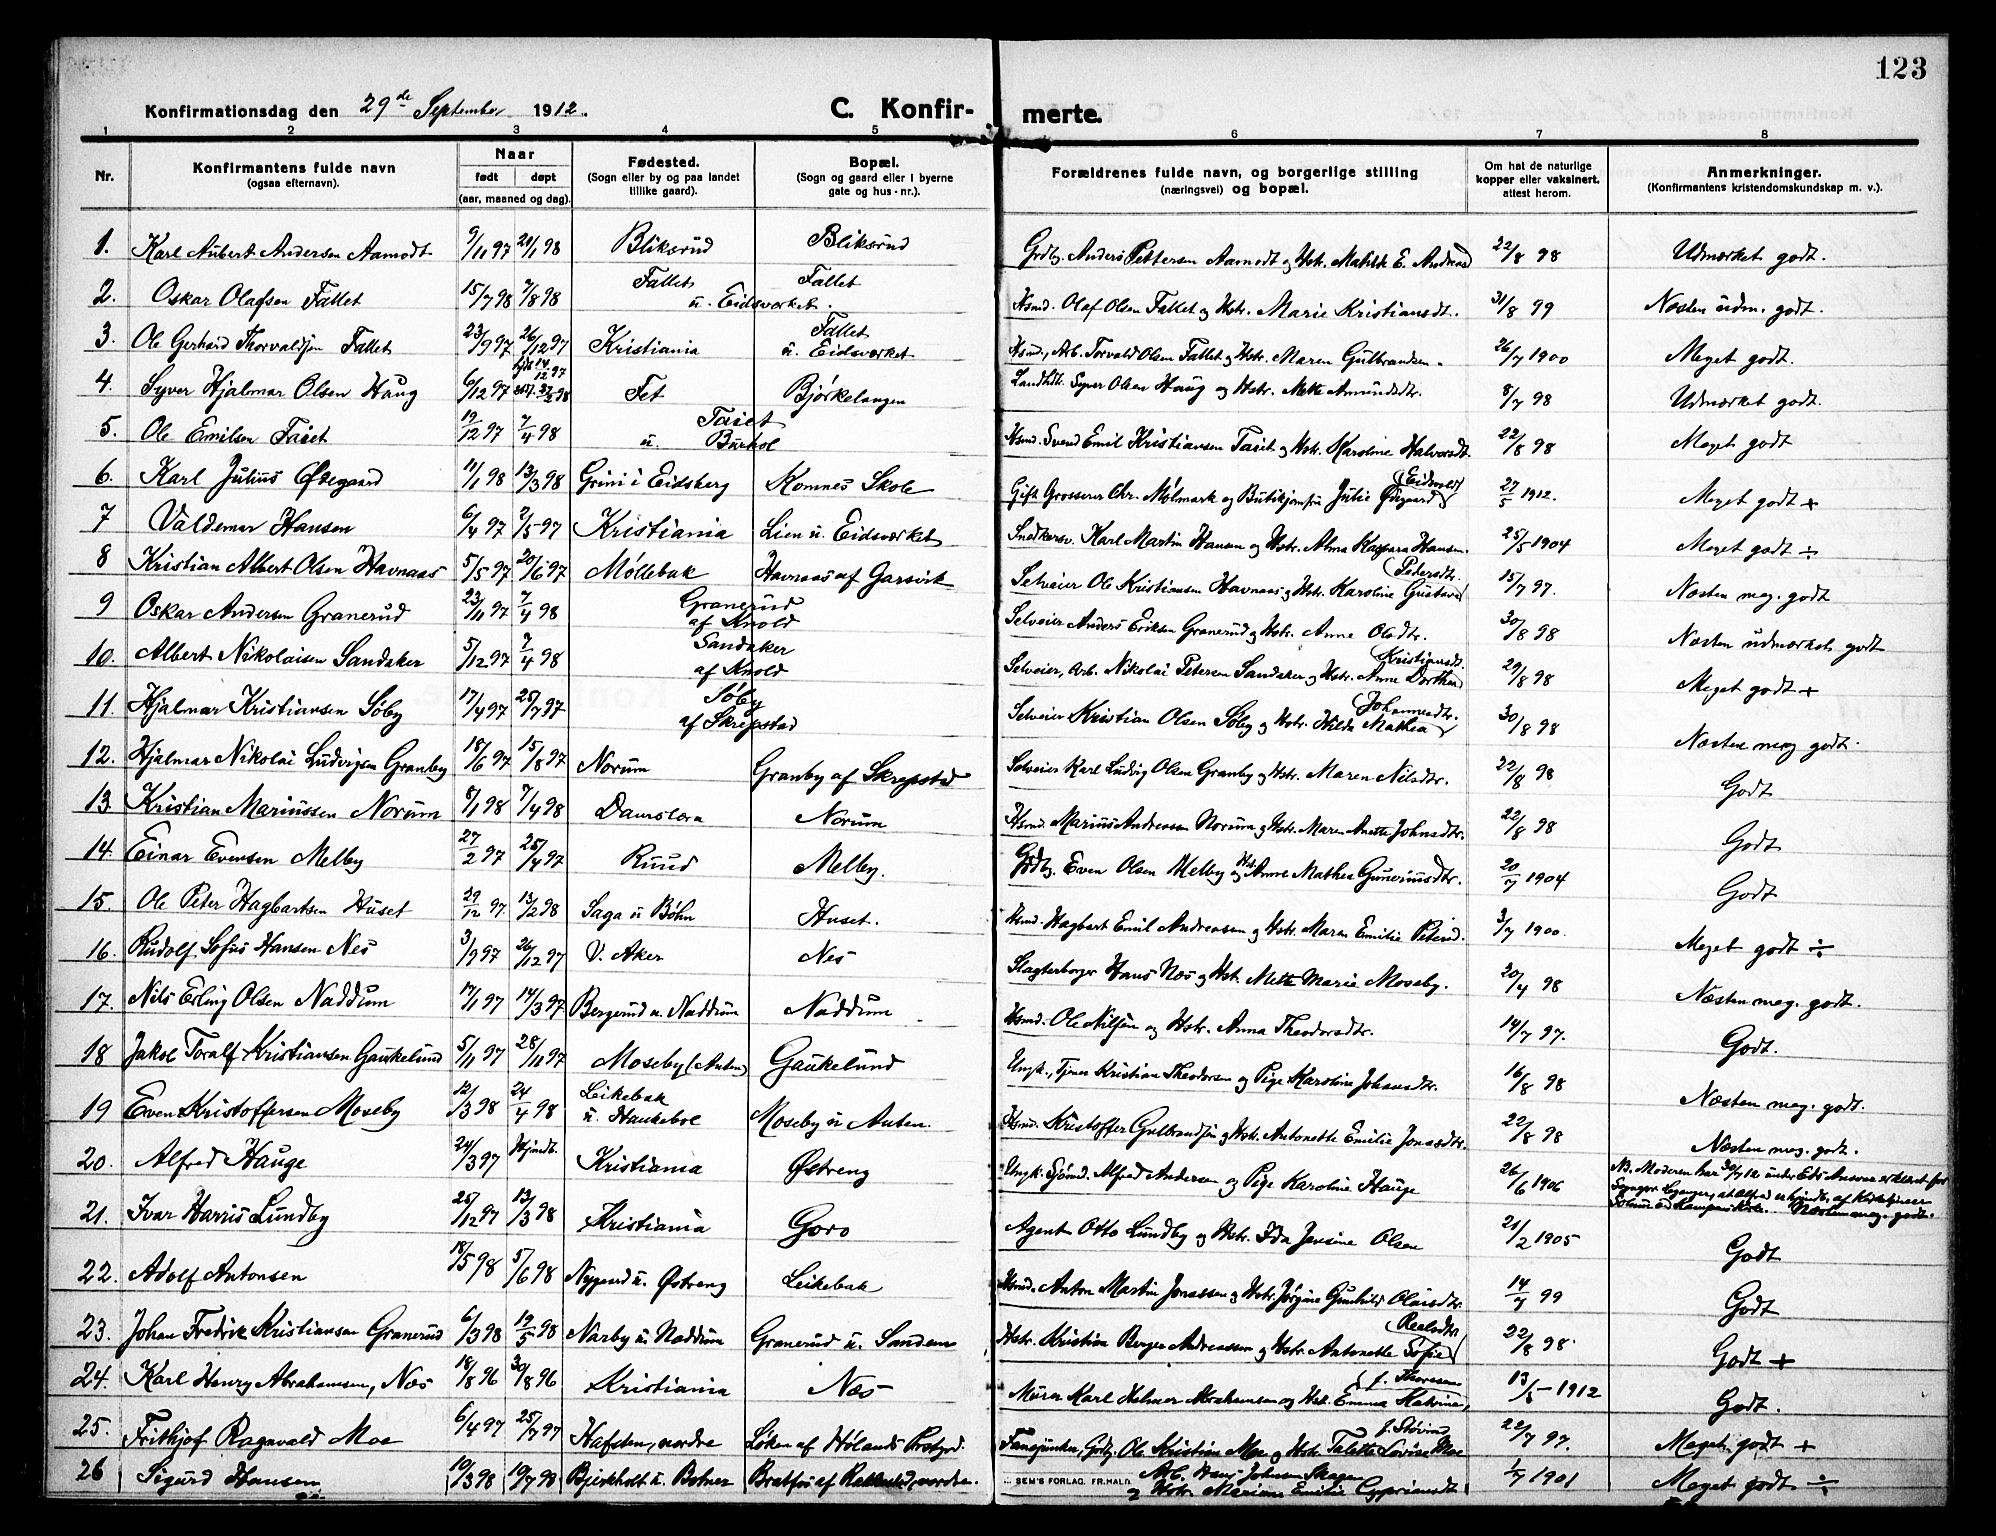 123
Konfirmationsdag den 29de September 1912.
C. Konfir-
merte.
1 2 3 4 5 6 7 8
Nr.
Konfirmantens fulde navn
(ogsaa efternavn).
Naar
født døpt
(aar, maaned og dag).
Fødested.
(Sogn eller by og paa landet
tillike gaard).
Bopæl.
(Sogn og gaard eller i byerne
gate og hus-nr.).
Forældrenes fulde navn, og borgerlige stilling
(næringsvei) og bopæl.
Om hat de naturlige
kopper eller vaksinert.
attest herom.
Anmerkninger.
(Konfirmantens kristendomskundskap m. v.).
1. Karl Aubert Andersen Aamodt 9/11 97 21/1 98 Bliksrud Bliksrud Grdbg. Anders Pettersen Aamodt og Hstr. Mathilde E. 22/8 98 Udmærket godt.
2. Oskar Olafsen Fallet 15/7 98 7/8 98 Fallet Fallet u. Eidsverket. Hsmd. Olaf Olsen Fallet og Hstr. Marie Kristiansdt. 31/8 99 Næsten udm. godt.
3. Ole Gerhard Thorvaldsen Fallet 23/9 97 26/12 97 Kristiania Fallet u. Eidsverket Hsmd., Arb. Torvald Olsen Fallet og Hstr. Maren Gulbrandsen. 26/7 1900 Meget godt.
4. Syver Hjalmar Olsen Haug 6/12 97 hjdt 14/12 97 Fet Bjørkelangen Landhdl. Syver Olsen Haug og Hstr. Mette Amundsdtr. 8/7 98 Udmærket godt.
5. Ole Emilsen Taiet 19/12 97 7/4 98 Taiet u. Burhol Hsmd. Svend Emil Kristiansen Taiet og Hstr. Karoline Halvorsdt. 22/8 98 Meget godt
6. Karl Julius Ødegaard 11/1 98 13/3 98 Grini i Eidsberg Komnes Skole Gift Grosserer Chr. Mølmark og Butikjomfru Julie Ødegaard (Eidsvold) 27/5 1912. Meget godt +
7 Valdemar Hansen 6/4 97 2/5 97 Kristiania Lien u. Eidsverket Snedkersv. Karl Martin Hansen og Hstr. Alma Kaspara Hansen. 25/5 1904 Meget godt ÷
8 Kristian Albert Olsen Havnaas 5/5 97 20/6 97 Møllebak Havnaas af Garsvik Selveier Ole Kristiansen Havnaas og Hstr. Karoline Gustava (Pedersdtr. 15/7 97. Næsten meg. godt
9 Oskar Andersen Granerud 23/11 97 7/4 98 Granerud af Knold Selveier Anders Eriksen Granerud og Hstr. Anne Olsdtr. 30/8 98 Næsten udmærket godt
10. Albert Nikolaisen Sandaker 5/12 97 7/4 98 Sandaker af Knold Selveier, Arb. Nikolai Petersen Sandaker og Hstr. Anne Dorthea (Kristiansdt. 29/8 98 Meget godt +
11. Hjalmar Kristiansen Søby 17/4 97 25/7 97 Søby af Skrepstad Selveier Kristian Olsen Søby og Hstr. Hilda Mathea (Johannesdtr. 30/8 98 Næsten meg godt.
12. Hjalmar Nikolai Ludvigsen Granby 18/6 97 15/8 97 Norum Granby af Skrepstad Selveier Karl Ludvig Olsen Granby og Hstr. Maren Nilsdtr. 22/8 98 Godt
13. Kristian Mariussen Norum 8/1 98 7/4 98 Daurstoen Norum Hsmd. Marius Andreassen Norum og Hstr. Maren Anette Johnsdtr. 22/8 98 Godt
14. Einar Evensen Melby 27/2 97 25/4 97 Ruud Melby. Grdbg. Even Olsen Melby og Hst. Anne Mathea Gunerriusdtr. 20/7 1904 Godt
15. Ole Peter Hagbartsen Huset 29/12 97. 13/2 98 Saga u Bøhn Huset. Hsmd. Hagbart Emil Andreasen og Hstr. Maren Emilie Petersd. 3/7 1900. Meget godt ÷
16. Rudolf Sofus Hansen Nes 3/9 97 26/12 97 V. Aker Nes Slagterborger Hans Nes og Hst. Mette Marie Moseby. 20/4 98 Næsten meg. godt.
17. Nils Erling Olsen Naddum 17/1 97 14/3 97 Bergerud u. Naddum Naddum Hsmd. Ole Nilsen og Hstr. Anna Theodorsdtr. 14/7 97. Godt.
18 Jakob Toralf Kristiansen Gaukelund 5/11 97 28/11 97 Moseby (Auten) Gaukelund Ungk., Tjener Kristian Theodorsen og Pige Karoline Johansdtr. 16/8 98 Næsten meg. godt.
19 Even Kristoffersen Moseby 12/3 98 24/4 98 Leikebak u. Haukebøl Moseby u Auten. Hsmd. Kristoffer Gulbrandsen og Hstr. Antonette Emilie Jonasdtr. 22/8 98 Næsten meg. godt.
20. Alfred Hauge 24/3 97 Hjemdt. Kristiania Østreng Ungk. Sjømd. Alfred Andersen og Pige Karoline Hauge 26/6 1906 NB. Moderen har 30/7 12 under Eds Ansvar erklæret for
Sogneprest , at Alfred er hjemdt. af Kirketjener
Solum ved Kampens Kirke. Næsten meg. godt.
21. Ivar Harris Lundby 25/12 97 13/3 98 Kristiania Goro Agent Otto Lundby og Hstr. Ida Jensine Olsen 21/2 1905 Godt
22. Adolf Antonsen 18/5 98 5/6 98 Nygaard u. Østreng Leikebak Hsmd. Anton Martin Jonassen og Hstr. Jørgine Gunhild Olaisdtr. 14/7 99 Godt
23. Johan Fredrik Kristiansen Granerud 6/3 98 19/5 98 Narby u. Naddum Granerud u. Sandem Hstr. Kristian Berger Andreassen og Hstr. Antonette Sofie 22/8 98 Godt +
24. Karl Henry Abrahamsen, Næs 18/8 96 30/8 96 Kristiania Næs Murer Karl Helmer Abrahamsen og Hst. Emma Katrine, f. Thoresen 13/5 1912 Godt.
25. Frithjof Ragnvald Moe 6/4 97 25/7 97 Hafsten, nordre Løken af Hølands Prstgrd. Fanejunker, Grdbg. Ole Kristian Moe og Hstr. Talette Lovise Moe 22/7 97. Meget godt +
26 Sigurd Hansen 10/3 98 10/7 98 Bjerkholt u. Botner Bratfos af Rakkestad, nordre. Arb. Hans Johnsen Skogen
og Hstr. Mariane Emilie Cypriansdt 1/7 1901 Meget godt ÷
SEM'S FORLAG. FR.HALD.